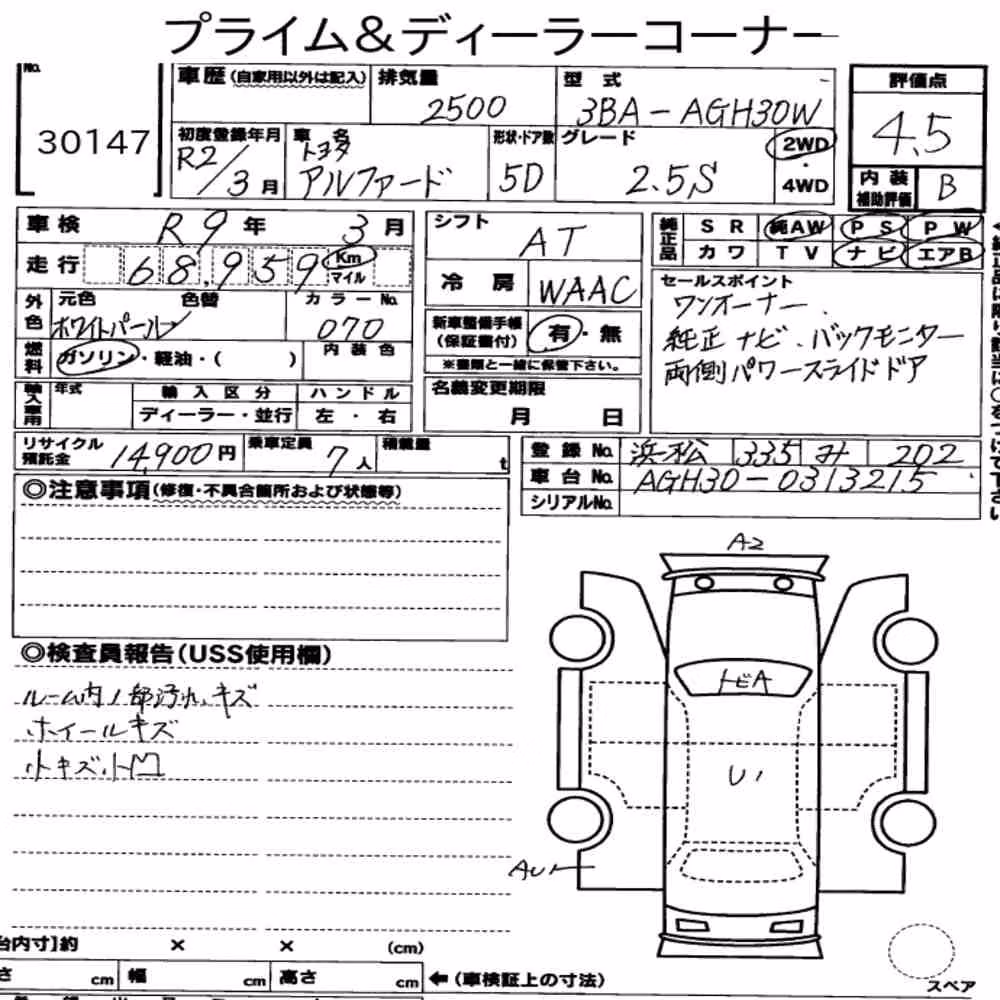 プライム＆ディーラーコーナー
No. 30147
車歴(自家用以外は記入) 排気量 2500 型式 3BA-AGH30W
初度登録年月 R2/3月 車名 トヨタ アルファード 形状・ドア数 5D グレード 2.5,S 2WD・4WD
評価点 4.5
内装補助評価 B
車検 R9年 3月
走行 68,959 Km マイル
外色 元色 ホワイトパール 色替 カラーNo. 070
燃料 ガソリン・軽油・( ) 内装色
輸入車用 年式 輸入区分 ディーラー・並行 ハンドル 左・右
リサイクル預託金 14,900円 乗車定員 7人 積載量 t
シフト AT
冷房 WAAC
新車整備手帳(保証書付) 有・無
※書類と一緒に保管下さい。
名義変更期限 月 日
純正品 SR 純AW PS PW
カワ TV ナビ エアB
セールスポイント
ワンオーナー
純正ナビ、バックモニター
両側パワースライドドア
登録No. 浜松 335 み 202
車台No. AGH30-0313215
シリアルNo.
◎注意事項(修復・不具合箇所および状態等)
◎検査員報告(USS使用欄)
ルーム内一部汚れ、キズ
ホイールキズ
小キズ、小凹
A2
トビA
U1
AU1
台内寸]約 × × (cm)
さ cm 幅 cm 高さ cm ←(車検証上の寸法)
スペア